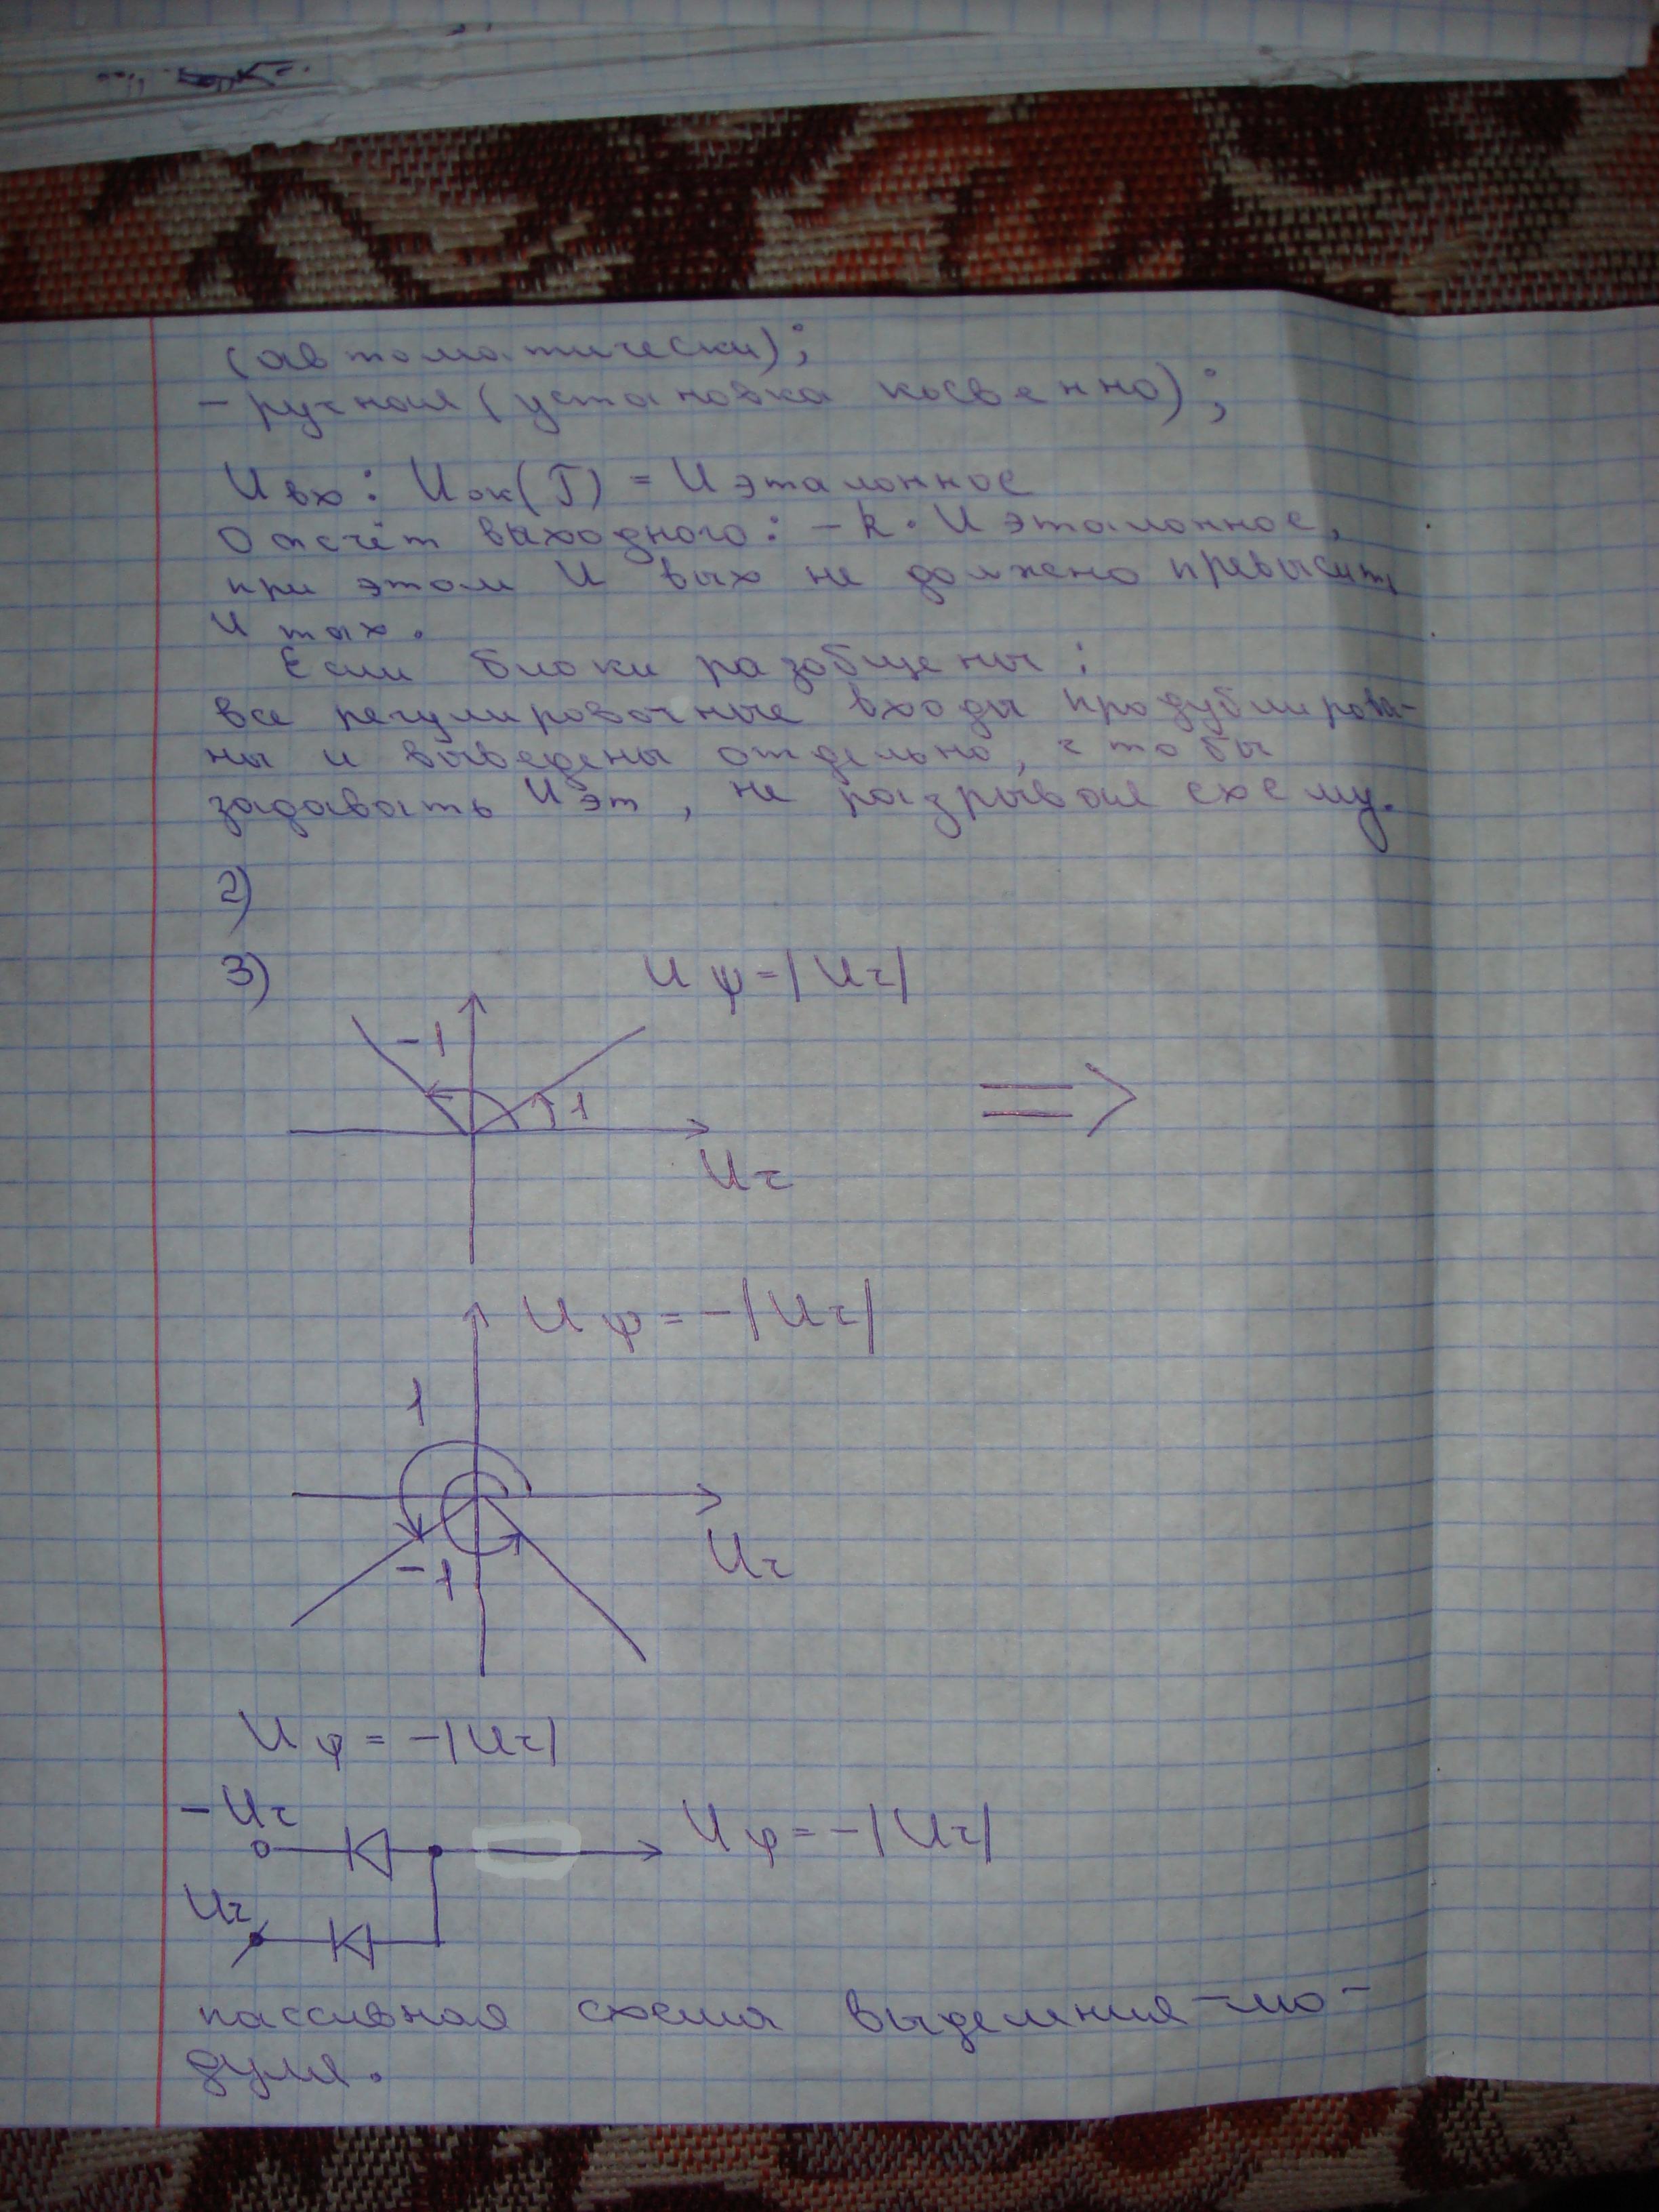 (автоматически);
- ручная (установка косвенно);
U вх: U ок(Т) = U эталонное
Отсчёт выходного: -k·U эталонное,
при этом U вых не должно превысить
U max.
Если блоки разобщены:
все регулировочные входы продублирова-
ны и выведены отдельно, чтобы
задавать U эт, не разрывая схему.
2)
3)
U ψ = |Uτ|
-1
1
=>
Uτ
U φ = -|Uτ|
1
-1
Uτ
U φ = -|Uτ|
-Uτ
U φ = -|Uτ|
Uτ
пассивная схема выделения -мо-
дуля.